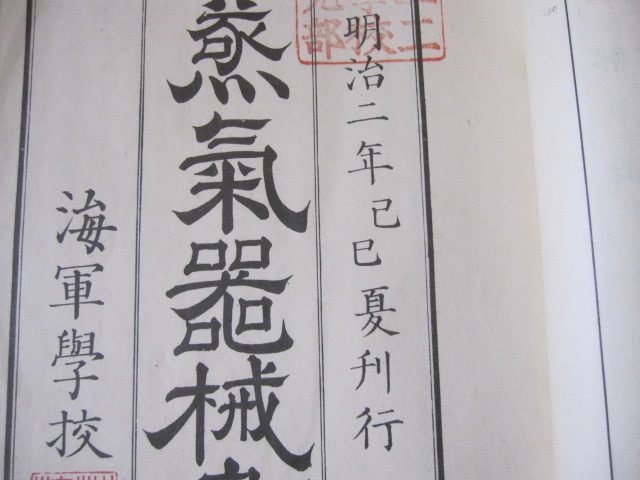 明治二年己巳夏刊行
蒸氣器械
海軍學校